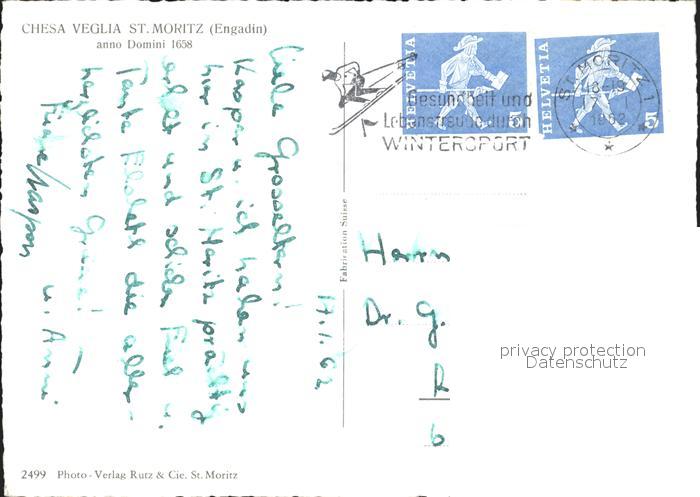 CHESA VEGLIA ST. MORITZ (Engadin)
anno Domini 1658
HELVETIA
5
HELVETIA
5
Gesundheit und
Lebensfreude durch
WINTERSPORT
ST. MORITZ 1
1962
17.1.62
Liebe Grosseltern!
Kaspar u. ich haben uns
hier in St. Moritz prächtig
erholt und schicken Euch u.
Tante Elsbeth die aller-
herzlichsten Grüsse!
u. Anni
Fabrication Suisse
Herrn
Dr. G.
R
b
privacy protection
Datenschutz
2499 Photo-Verlag Rutz & Cie. St. Moritz